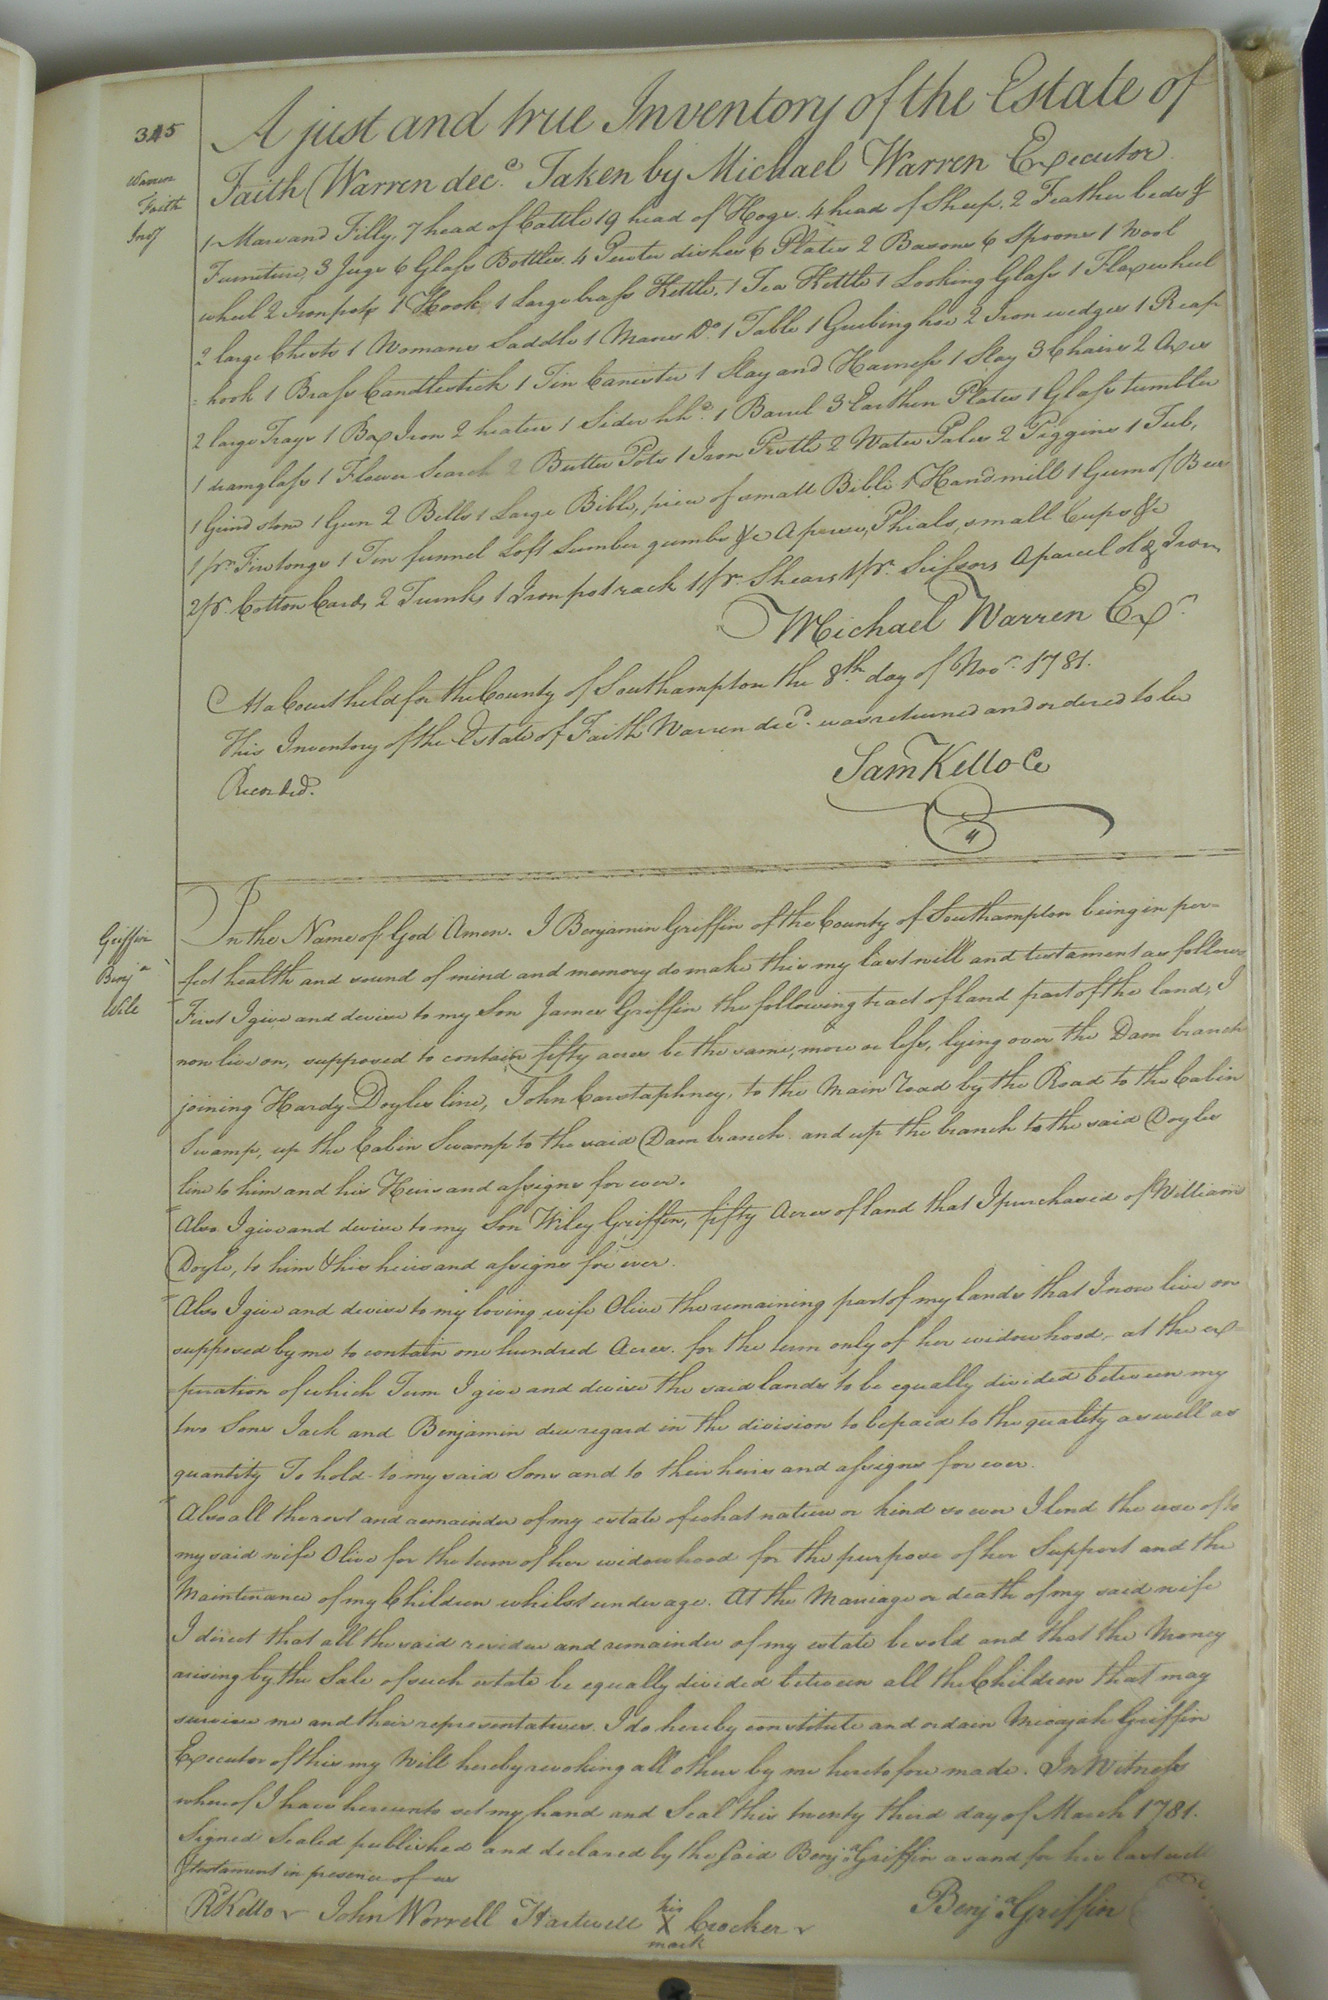 345
Warren
Faith
Invy
A just and true Inventory of the Estate of
Faith Warren decd. Taken by Michael Warren Executor
1 Mare and Filly, 7 head of Cattle 19 head of Hogs. 4 head of Sheep. 2 Feather beds &
Furniture, 3 Jugs 6 Glass Bottles. 4 Pewter dishes 6 Plates 2 Basons 6 Spoons 1 Wool
wheel 2 Iron pots 1 Hook 1 Large brass Kettle, 1 Tea Kettle 1 Looking Glass 1 Flaxwheel
2 large Chests 1 Womans Saddle 1 Mans Do. 1 Table 1 Grubing hoe 2 Iron wedges 1 Reap
hook 1 Brass Candlestick 1 Tin Canister 1 Slay and Harness 1 Slay 3 Chairs 2 Axes
2 large Trays 1 Box Iron 2 heaters 1 Sider hhd. 1 Barrel 3 Earthen Plates 1 Glass tumbler
1 dramglass 1 Flower Search 2 Butter Pots 1 Iron Pestle 2 Water Pales 2 Piggins 1 Tub,
1 Grind stone 1 Gun 2 Bells 1 Large Bible, piece of small Bible 1 Handmill 1 Gum of Bees
1 pr. Firetongs 1 Tin funnel Loft Lumber gumbs &c A parcel Phials, small Cups &c
2 pr. Cotton Cards 2 Trunks 1 Iron pot rack 1 pr. Shears 1 pr. Scissors A parcel old Iron
Michael Warren Exr.
At a Court held for the County of Southampton the 8th day of Novr. 1781.
This Inventory of the Estate of Faith Warren decd. was returned and ordered to be
Recorded.
Saml Kello Cc
Griffin
Benja
Will
In the Name of God Amen. I Benjamin Griffin of the County of Southampton being in per-
fect health and sound of mind and memory do make this my last will and testament as follows
First I give and devise to my Son James Griffin the following tract of land part of the land, I
now live on, supposed to contain fifty acres be the same, more or less, lying over the Dam branch
joining Hardy Doyles line, John Carstaphney, to the Main road by the Road to the Cabin
Swamp, up the Cabin Swamp to the said Dam branch and up the branch to the said Doyles
line to him and his Heirs and assigns for ever.
Also I give and devise to my Son Wiley Griffin, fifty Acres of land that I purchased of William
Doyle, to him & his heirs and assigns for ever.
Also I give and devise to my loving wife Olive the remaining part of my lands that I now live on
supposed by me to contain one hundred Acres. for the term only of her widowhood, at the ex-
piration of which Term I give and devise the said lands to be equally divided between my
two Sons Jack and Benjamin due regard in the division to be paid to the quality as well as
quantity To hold to my said Sons and to their heirs and assigns for ever.
Also all the rest and remainder of my estate of what nature or kind so ever I lend the use of to
my said wife Olive for the term of her widowhood for the purpose of her Support and the
Maintenance of my Children whilst under age. At the Marriage or death of my said wife
I direct that all the said residue and remainder of my estate be sold and that the Money
arising by the Sale of such estate be equally divided between all the Children that may
survive me and their representatives. I do hereby constitute and ordain Micajah Griffin
Executor of this my Will hereby revoking all others by me heretofore made. In Witness
whereof I have hereunto set my hand and Seal this twenty third day of March 1781.
Signed Sealed published and declared by the said Benja Griffin as and for his last will
& testament in presence of us
Rd Kello John Worrell Hartwell his X mark Crocker
Benja Griffin